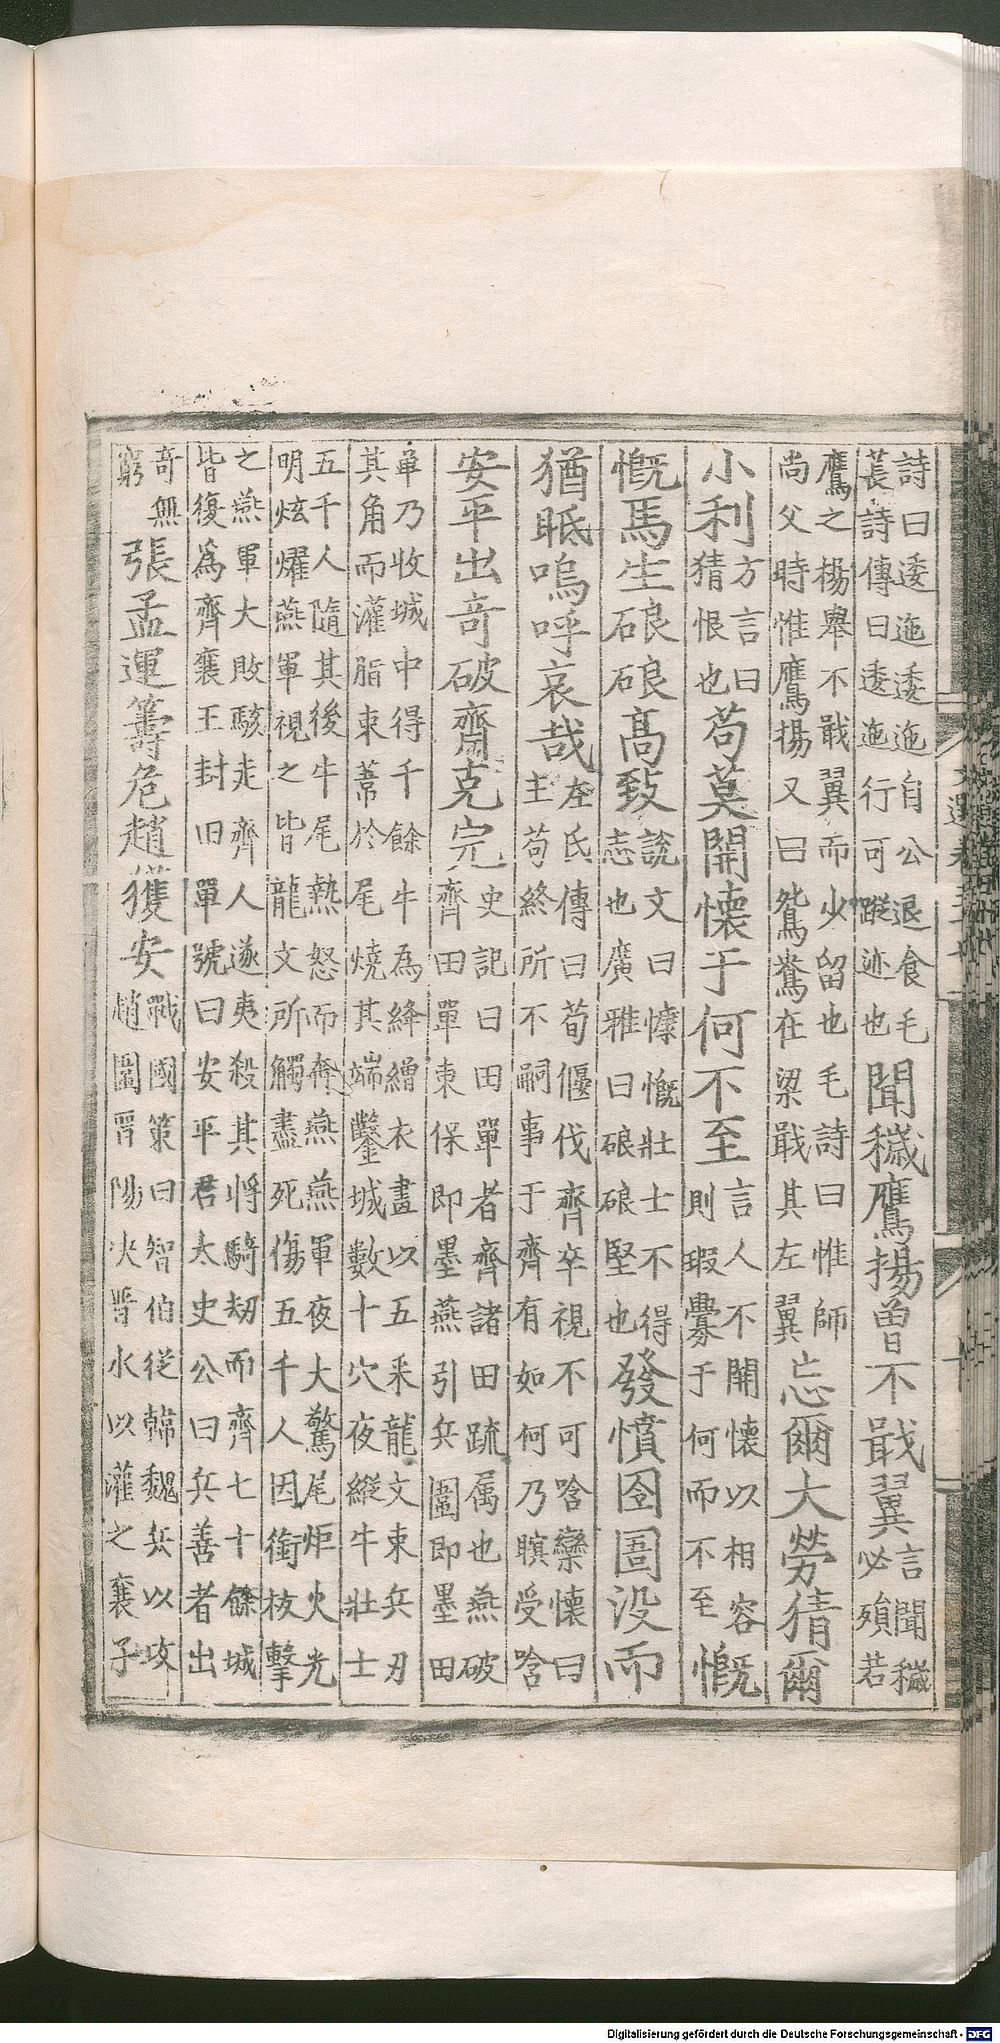 詩曰逶迤逶迤自公退食毛萇詩傳曰逶迤行可蹤迹也聞穢鷹揚曽不戢翼言聞穢必殞若
鷹之揚舉不戢翼而少留也毛詩曰惟師尚父時惟鷹揚又曰鴛鴦在梁戢其左翼忘爾大勞猜爾
小利方言曰猜恨也苟莫開懷于何不至言人不開懷以相容則瑕釁于何而不至慨
慨馬生硠硠高致說文曰慷慨壯士不得志也廣雅曰硠硠堅也發憤囹圄没而
猶眡嗚呼哀哉左氏傳曰荀偃伐齊卒視不可唅欒懷曰主荀終所不嗣事于齊有如何乃瞑受唅
安平出奇破齊克完史記曰田單者齊諸田疏属也燕破齊田單東保即墨燕引兵圍即墨田
單乃收城中得千餘牛為絳繒衣畫以五釆龍文束兵刃其角而灌脂束葦於尾燒其端鑿城數十穴夜縱牛壯士
五千人隨其後牛尾熱怒而奔燕燕軍夜大驚尾炬火光明炫燿燕軍視之皆龍文所觸盡死傷五千人因銜枚擊
之燕軍大敗駭走齊人遂夷殺其將騎劫而齊七十餘城皆復為齊襄王封田單號曰安平君太史公曰兵善者出
奇無窮張孟運籌危趙獲安戰國策曰智伯從韓魏兵以攻趙圍晉陽决晉水以灌之襄子
Digitalisierung gefördert durch die Deutsche Forschungsgemeinschaft - DFG